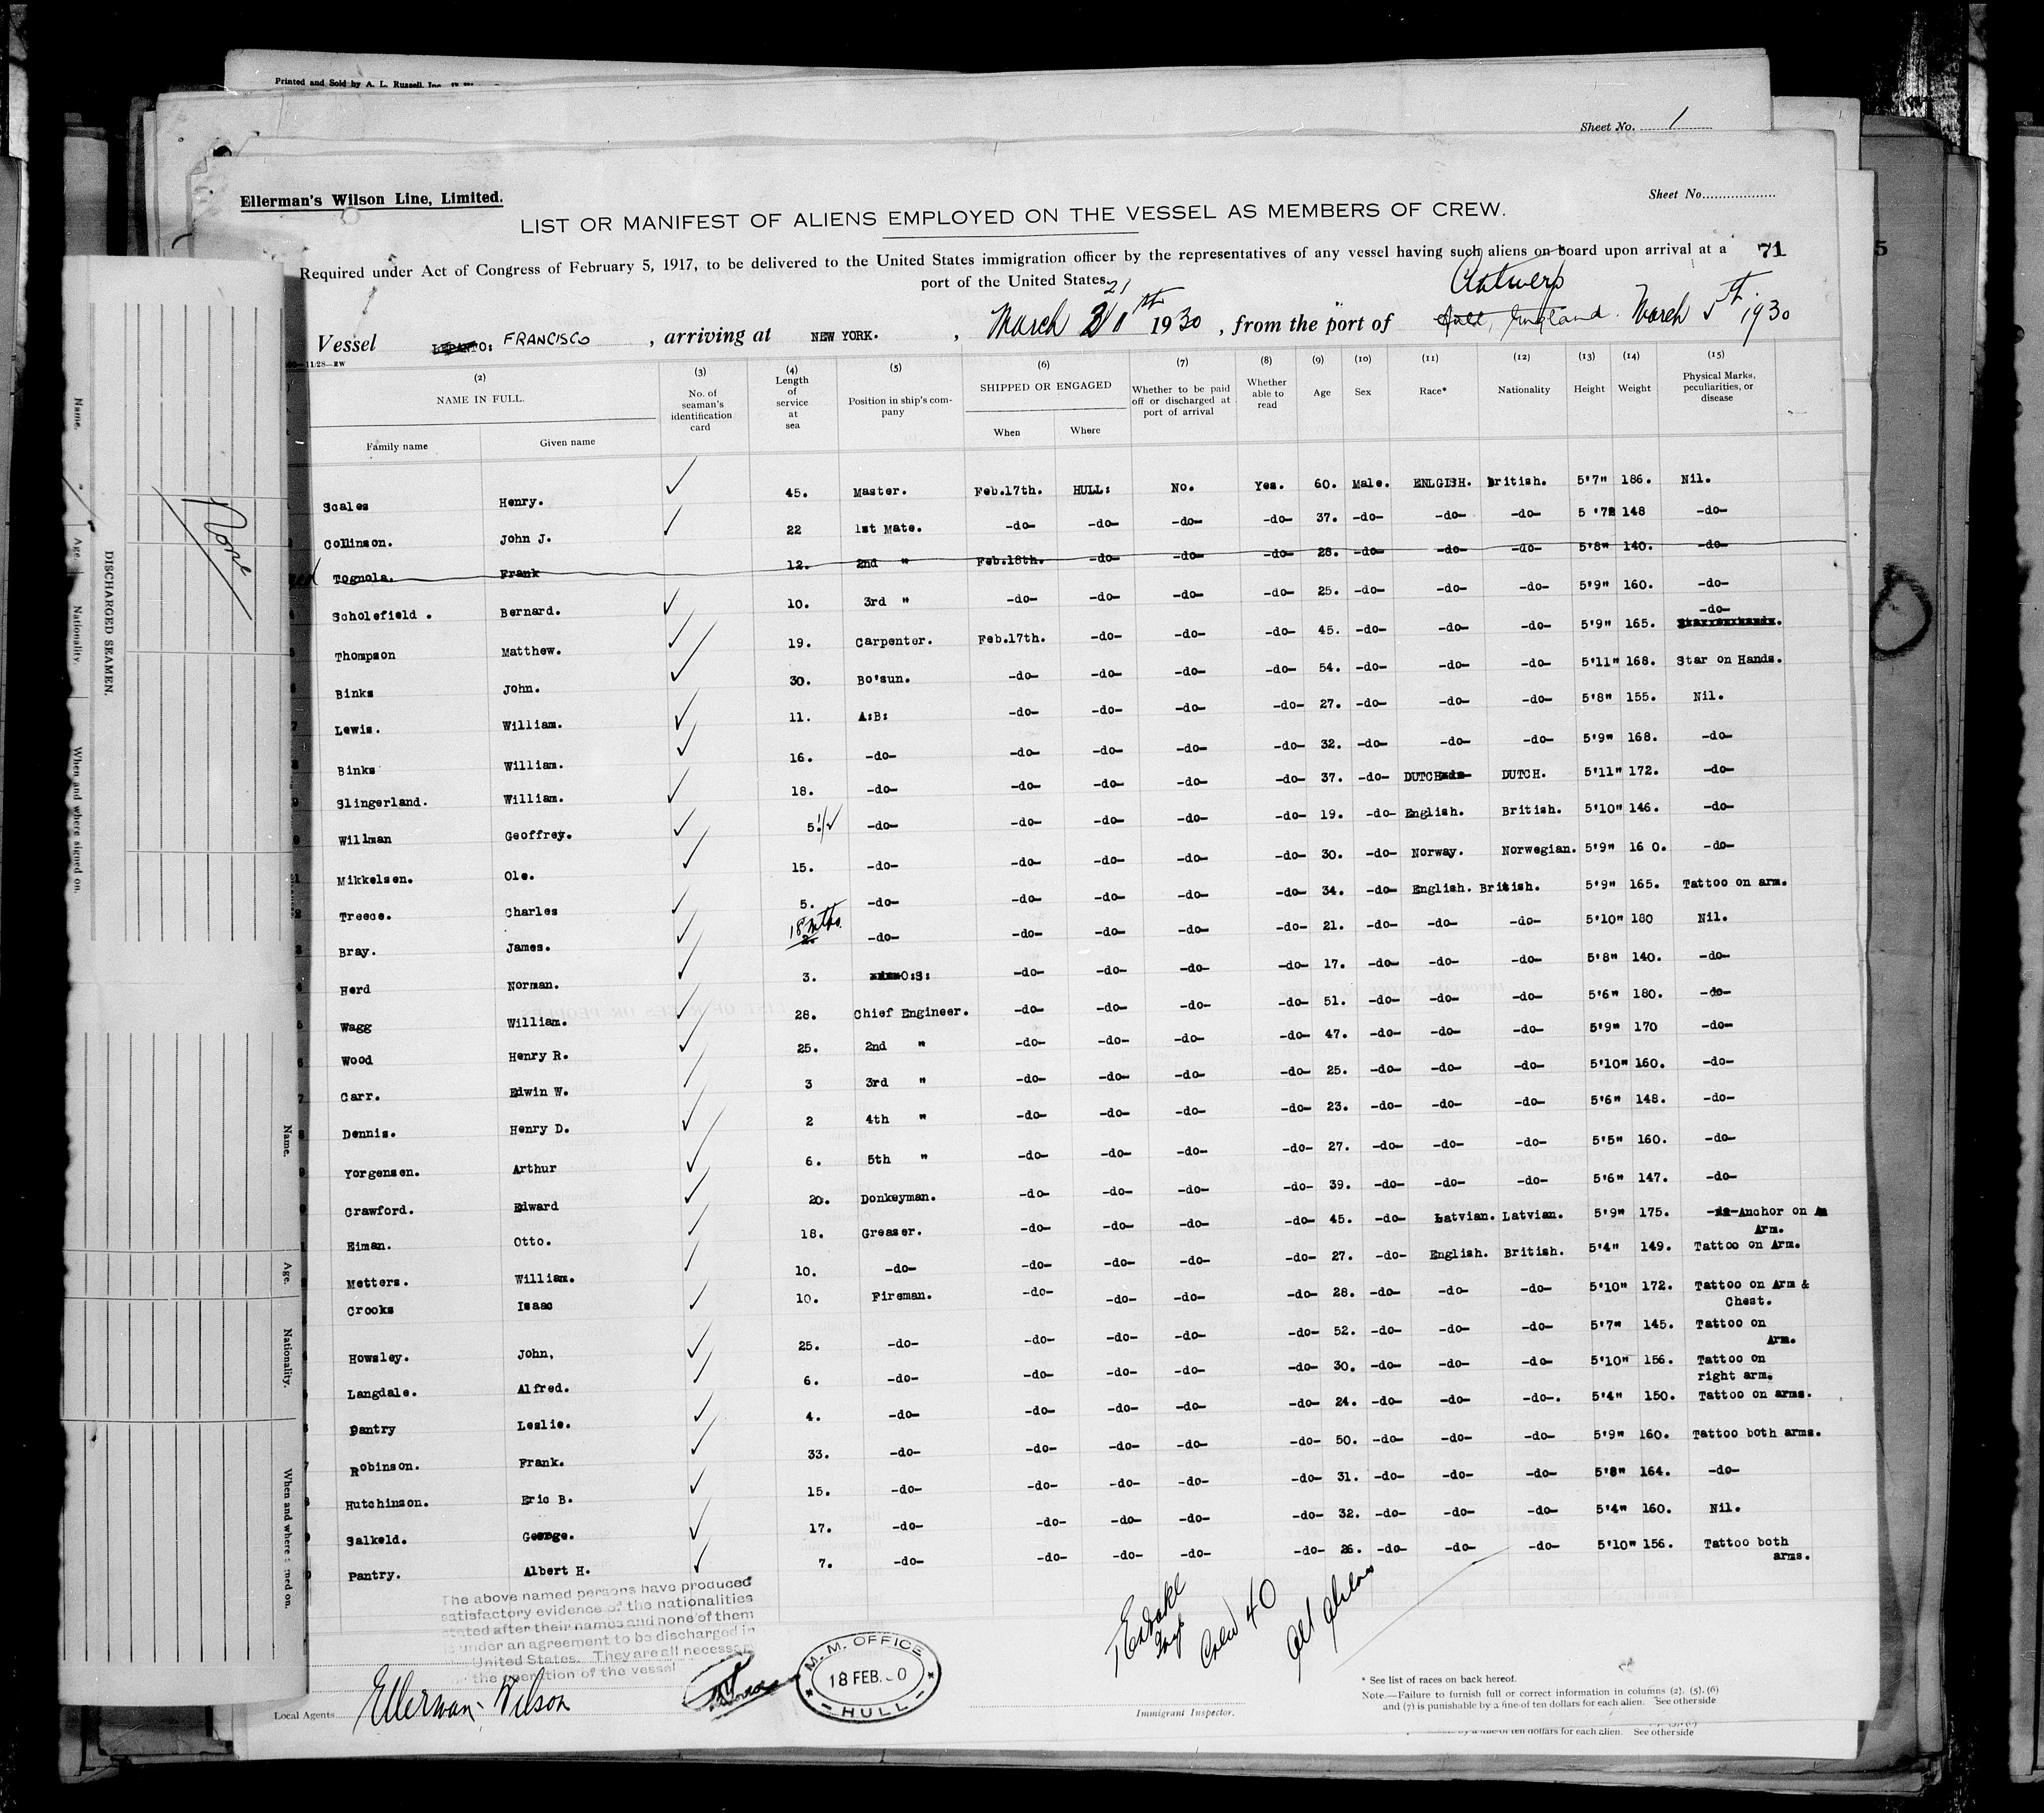 Printed and Sold by A. L. Russell, Inc.
Sheet No. 1
Ellerman's Wilson Line, Limited.
Sheet No.
LIST OR MANIFEST OF ALIENS EMPLOYED ON THE VESSEL AS MEMBERS OF CREW.
Required under Act of Congress of February 5, 1917, to be delivered to the United States immigration officer by the representatives of any vessel having such aliens on board upon arrival at a
port of the United States.
71
5
Antwerp
Vessel FRANCISCO, arriving at NEW YORK. , March 21 th 1930, from the port of Hull, England. March 5th 1930
(2) (3) (4) (5) (6) (7) (8) (9) (10) (11) (12) (13) (14) (15)
NAME IN FULL. No. of seaman's identification card Length of service at sea Position in ship's company SHIPPED OR ENGAGED Whether to be paid off or discharged at port of arrival Whether able to read Age Sex Race* Nationality Height Weight Physical Marks, peculiarities, or disease
Family name Given name When Where
Scales Henry. 45. Master. Feb.17th. HULL: No. Yes. 60. Male. ENLGISH. British. 5'7" 186. Nil.
Collinson. John J. 22 1st Mate. -do- -do- -do- -do- 37. -do- -do- -do- 5'7" 148 -do-
Tognola. Frank 12. 2nd " Feb.18th. -do- -do- -do- 28. -do- -do- -do- 5'8" 140. -do-
Scholefield. Bernard. 10. 3rd " -do- -do- -do- -do- 25. -do- -do- -do- 5'9" 160. -do-
Thompson Matthew. 19. Carpenter. Feb.17th. -do- -do- -do- 45. -do- -do- -do- 5'9" 165. -do-
Binks John. 30. Bo'sun. -do- -do- -do- -do- 54. -do- -do- -do- 5'11" 168. Star on Hands.
Lewis. William. 11. A:B: -do- -do- -do- -do- 27. -do- -do- -do- 5'8" 155. Nil.
Binks William. 16. -do- -do- -do- -do- -do- 32. -do- -do- -do- 5'9" 168. -do-
Slingerland. William. 18. -do- -do- -do- -do- -do- 37. -do- DUTCH DUTCH. 5'11" 172. -do-
Willman Geoffrey. 5. -do- -do- -do- -do- -do- 19. -do- English. British. 5'10" 146. -do-
Mikkelsen. Ole. 15. -do- -do- -do- -do- -do- 30. -do- Norway. Norwegian. 5'9" 16 0. -do-
Treece. Charles 5. -do- -do- -do- -do- -do- 34. -do- English. British. 5'9" 165. Tattoo on arm.
Bray. James. 18 mths. 2. -do- -do- -do- -do- -do- 21. -do- -do- -do- 5'10" 180 Nil.
Herd Norman. 3. O:S: -do- -do- -do- -do- 17. -do- -do- -do- 5'8" 140. -do-
Wagg William. 28. Chief Engineer. -do- -do- -do- -do- 51. -do- -do- -do- 5'6" 180. -do-
Wood Henry R. 25. 2nd " -do- -do- -do- -do- 47. -do- -do- -do- 5'9" 170 -do-
Carr. Edwin W. 3 3rd " -do- -do- -do- -do- 25. -do- -do- -do- 5'10" 160. -do-
Dennis. Henry D. 2 4th " -do- -do- -do- -do- 23. -do- -do- -do- 5'6" 148. -do-
Yorgensen. Arthur 6. 5th " -do- -do- -do- -do- 27. -do- -do- -do- 5'5" 160. -do-
Crawford. Edward 20. Donkeyman. -do- -do- -do- -do- 39. -do- -do- -do- 5'6" 147. -do-
Eiman. Otto. 18. Greaser. -do- -do- -do- -do- 45. -do- Latvian. Latvian. 5'9" 175. Anchor on Arm.
Metters. William. 10. -do- -do- -do- -do- -do- 27. -do- English. British. 5'4" 149. Tattoo on Arm.
Crooks Isaac 10. Fireman. -do- -do- -do- -do- 28. -do- -do- -do- 5'10" 172. Tattoo on Arm & Chest.
Howsley. John, 25. -do- -do- -do- -do- -do- 52. -do- -do- -do- 5'7" 145. Tattoo on Arm.
Langdale. Alfred. 6. -do- -do- -do- -do- -do- 30. -do- -do- -do- 5'10" 156. Tattoo on right arm.
Pantry Leslie. 4. -do- -do- -do- -do- -do- 24. -do- -do- -do-. 5'4" 150. Tattoo on arms.
Robinson. Frank. 33. -do- -do- -do- -do- -do- 50. -do- -do- -do- 5'9" 160. Tattoo both arms.
Hutchinson. Eric B. 15. -do- -do- -do- -do- -do- 31. -do- -do- -do- 5'8" 164. -do-
Salkeld. George. 17. -do- -do- -do- -do- -do- 32. -do- -do- -do- 5'4" 160. Nil.
Pantry. Albert H. 7. -do- -do- -do- -do- -do- 26. -do- -do- -do- 5'10" 156. Tattoo both arms.
The above named persons have produced
satisfactory evidence of the nationalities
stated after their names and none of them
is under an agreement to be discharged in
United States. They are all necessary
the operation of the vessel
Local Agents Ellerman Wilson
M. M. OFFICE
18 FEB. 0
HULL
Crew 40
All Aliens
Immigrant Inspector.
* See list of races on back hereof.
Note.—Failure to furnish full or correct information in columns (2), (5), (6)
and (7) is punishable by a fine of ten dollars for each alien. See other side
by a fine of ten dollars for each alien. See other side
DISCHARGED SEAMEN.
Name. Age. Nationality. When and where signed on.
None
Name. Age. Nationality. When and where signed on.